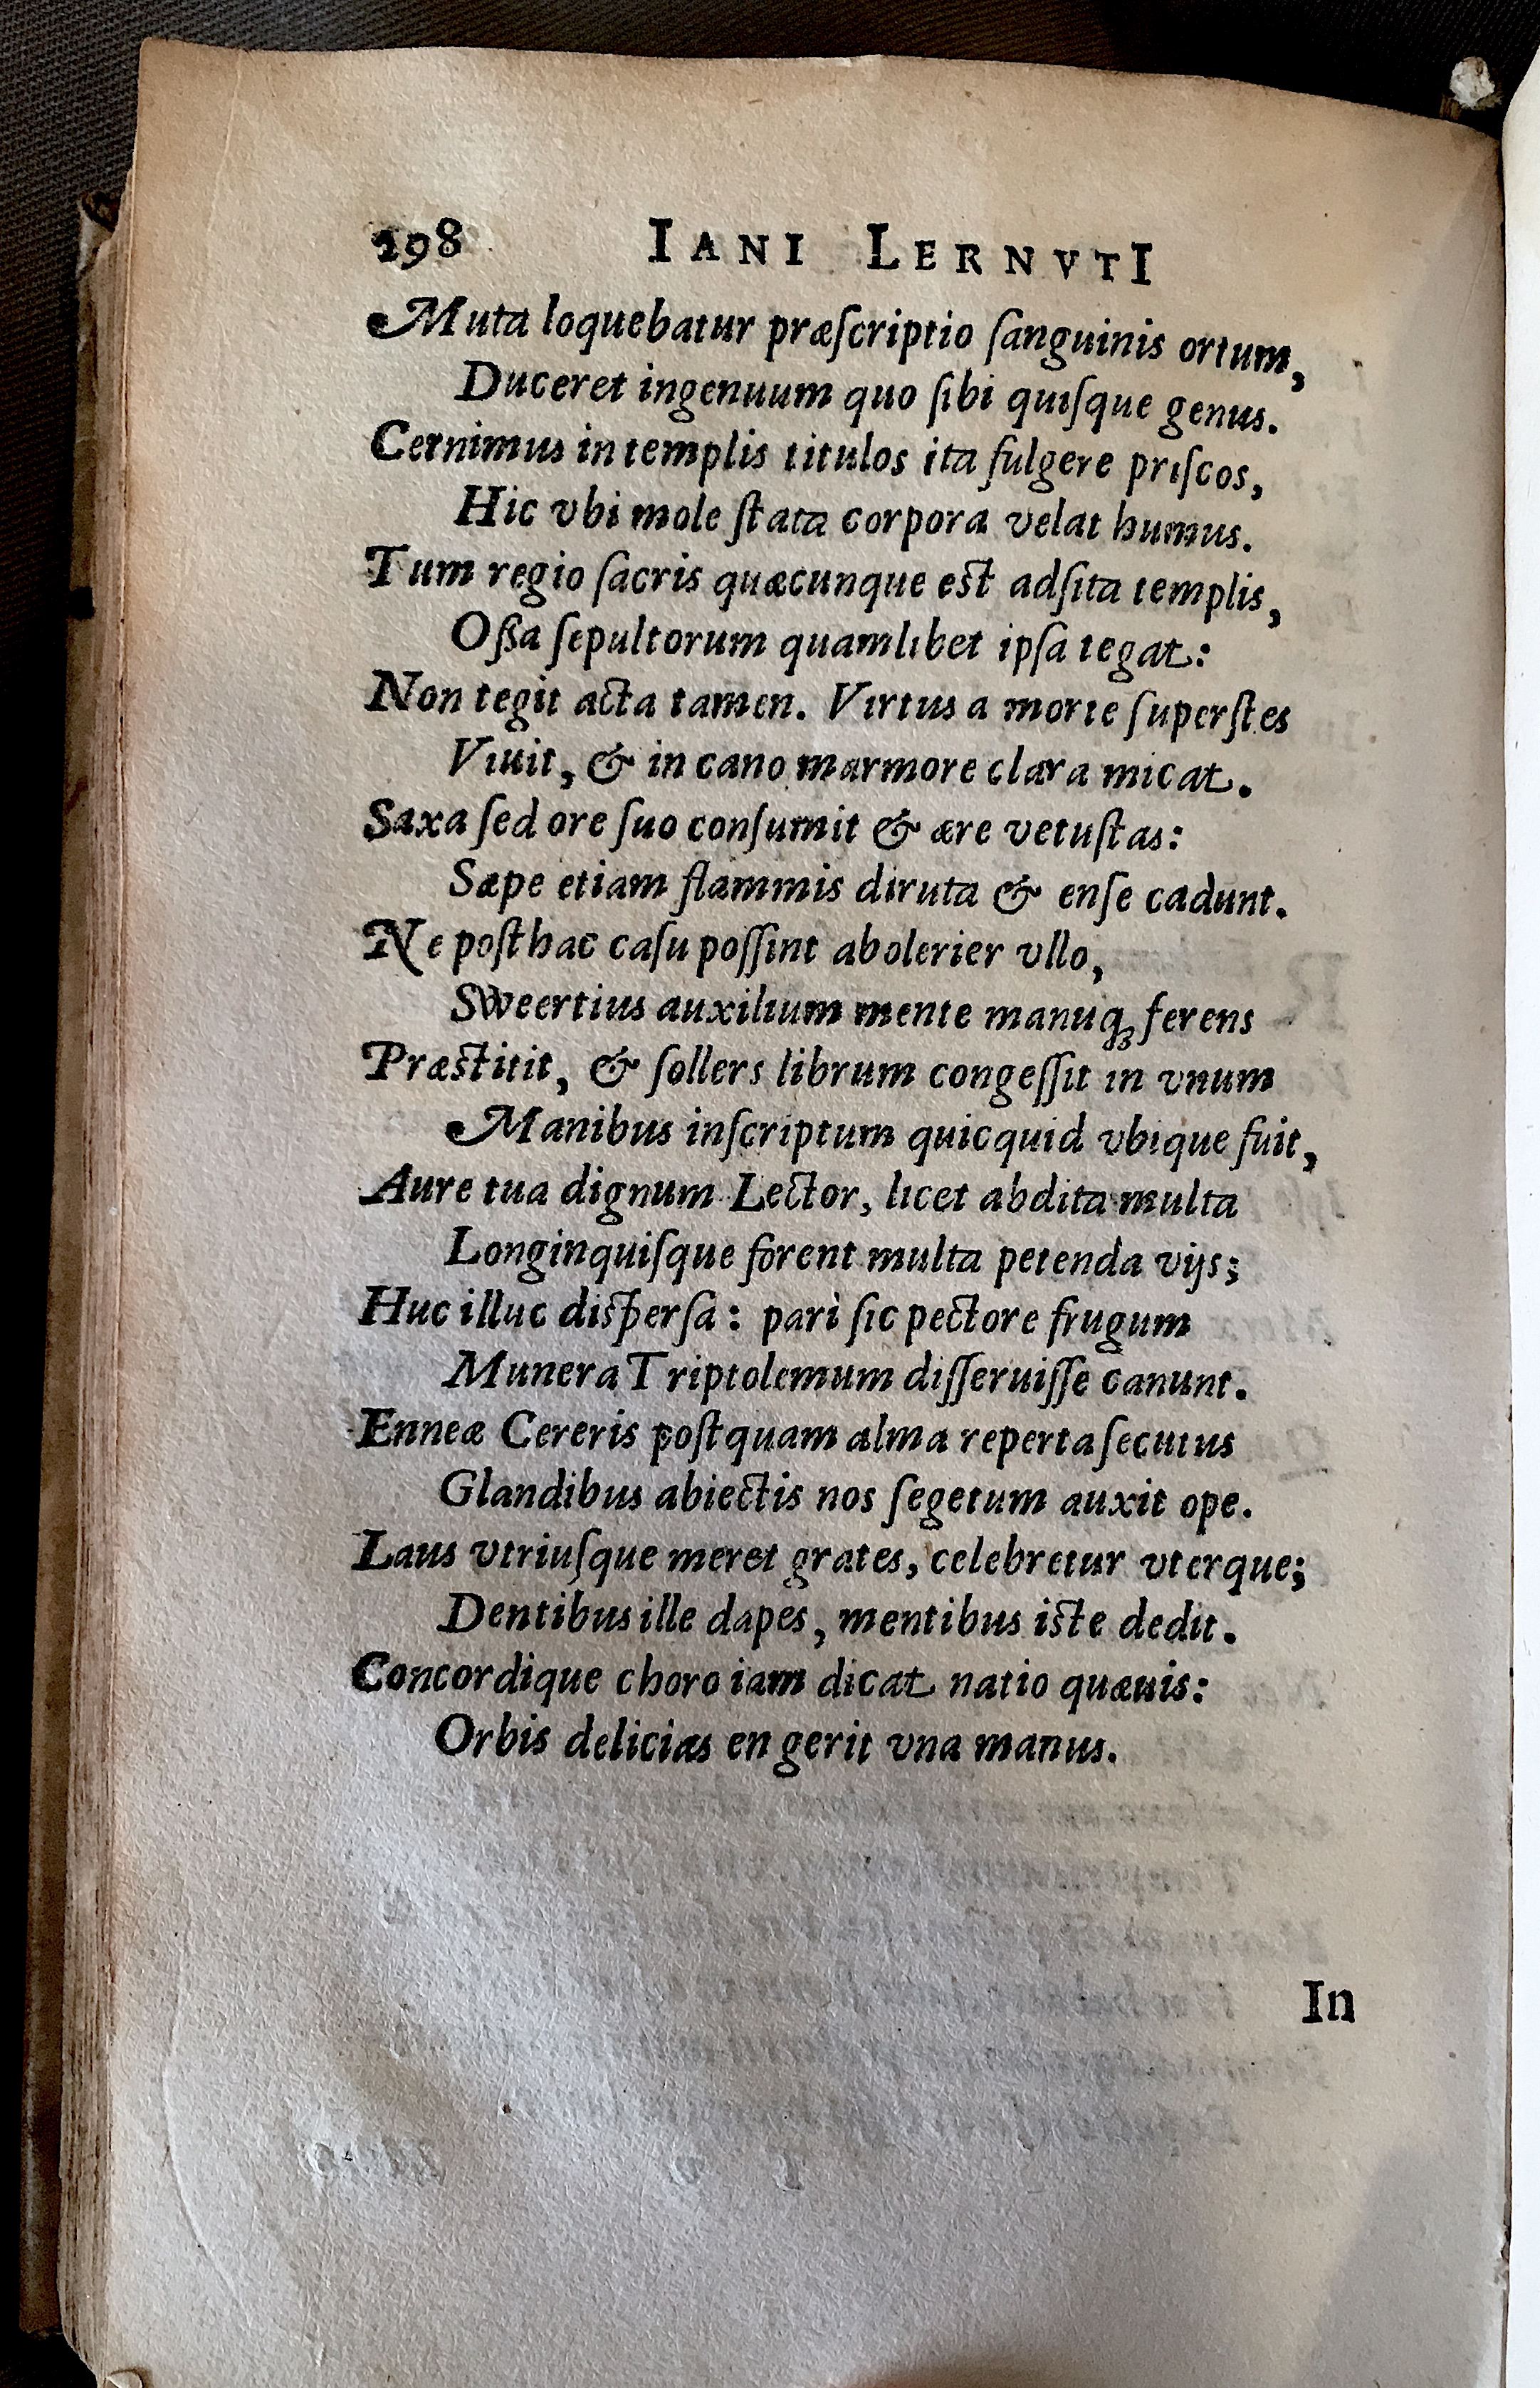 298 IANI LERNVTI
Muta loquebatur præſcriptio ſanguinis ortum,
Duceret ingenuum quo ſibi quiſque genus.
Cernimus in templis titulos ita fulgere priſcos,
Hic vbi mole ſtata corpora velat humus.
Tum regio ſacris quæcunque eſt adſita templis,
Oſſa ſepultorum quamlibet ipſa tegat:
Non tegit acta tamen. Virtus a morte ſuperſtes
Viuit, & in cano marmore clara micat.
Saxa ſed ore ſuo conſumit & ære vetuſtas:
Sæpe etiam flammis diruta & enſe cadunt.
Ne poſthac caſu poſſint abolerier vllo,
Sweertius auxilium mente manuq́ue ferens
Præſtitit, & ſollers librum congeſſit in vnum
Manibus inſcriptum quicquid vbique fuit,
Aure tua dignum Lector, licet abdita multa
Longinquiſque forent multa petenda vijs;
Huc illuc diſperſa: pari ſic pectore frugum
Munera Triptolemum diſſeruiſſe canunt.
Enneæ Cereris poſtquam alma reperta ſecutus
Glandibus abiectis nos ſegetum auxit ope.
Laus vtriuſque meret grates, celebretur vterque;
Dentibus ille dapes, mentibus iſte dedit.
Concordique choro iam dicat natio quæuis:
Orbis delicias en gerit vna manus.
In